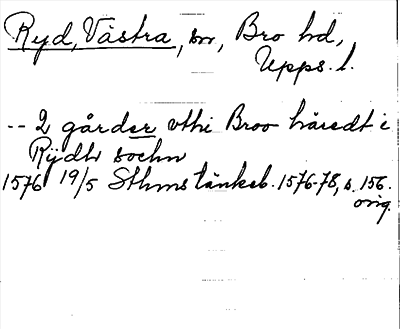 Ryd, Västra, sn, Bro hd,
Upps. l.
-- 2 gårder vthi Broo häredt i
Rÿdh sochn
1576 19/5 Sthms tänkeb. 1576-78, s. 156.
orig.